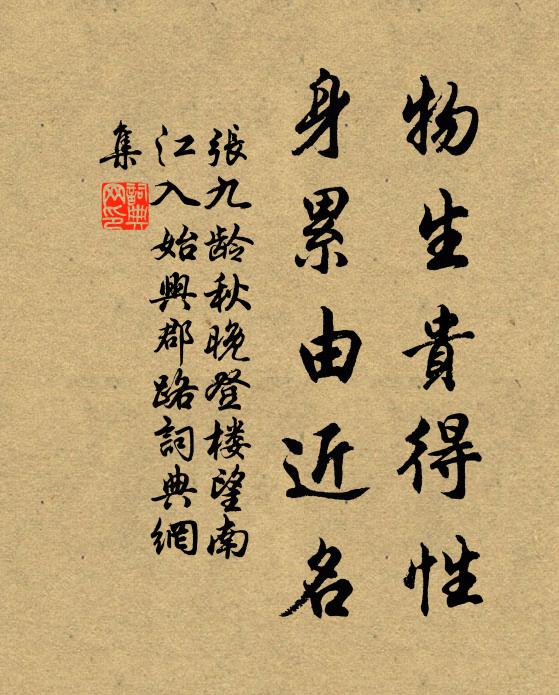 物生貴得性
身累由近名
張九龄秋晚登楼望南
江入始興郡路詞典網
集
詞典网印